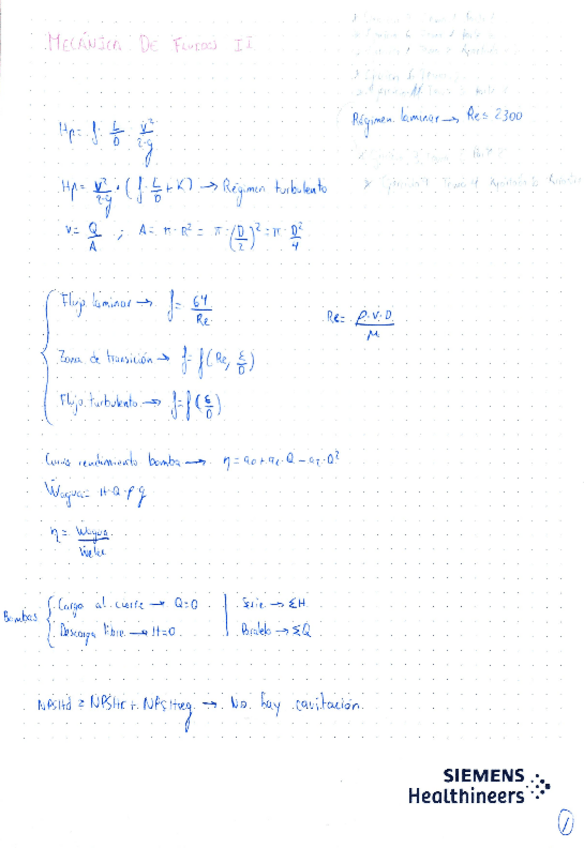 MECÁNICA DE FLUIDOS II
Régimen laminar → Re ≤ 2300
Hp = f · L/D · v²/2·g
Hp = v²/2·g · (f · L/D + K) → Régimen turbulento
v = Q/A ; A = π · R² = π · (D/2)² = π · D²/4
Flujo laminar → f = 64/Re
Re = ρ·v·D/μ
Zona de transición → f = f(Re, ε/D)
Flujo turbulento → f = f(ε/D)
rendimiento bomba → η = a₀ + a₁ · Q − a₂ · Q²
Ẇagua = H · Q · ρ g
η = Ẇagua/Ẇelec
Bombas
Carga al cierre → Q=0
Serie → ΣH
Descarga libre → H=0
Paralelo → ΣQ
NPSHd ≥ NPSHr + NPSHseg → No hay cavitación.
SIEMENS
Healthineers
1